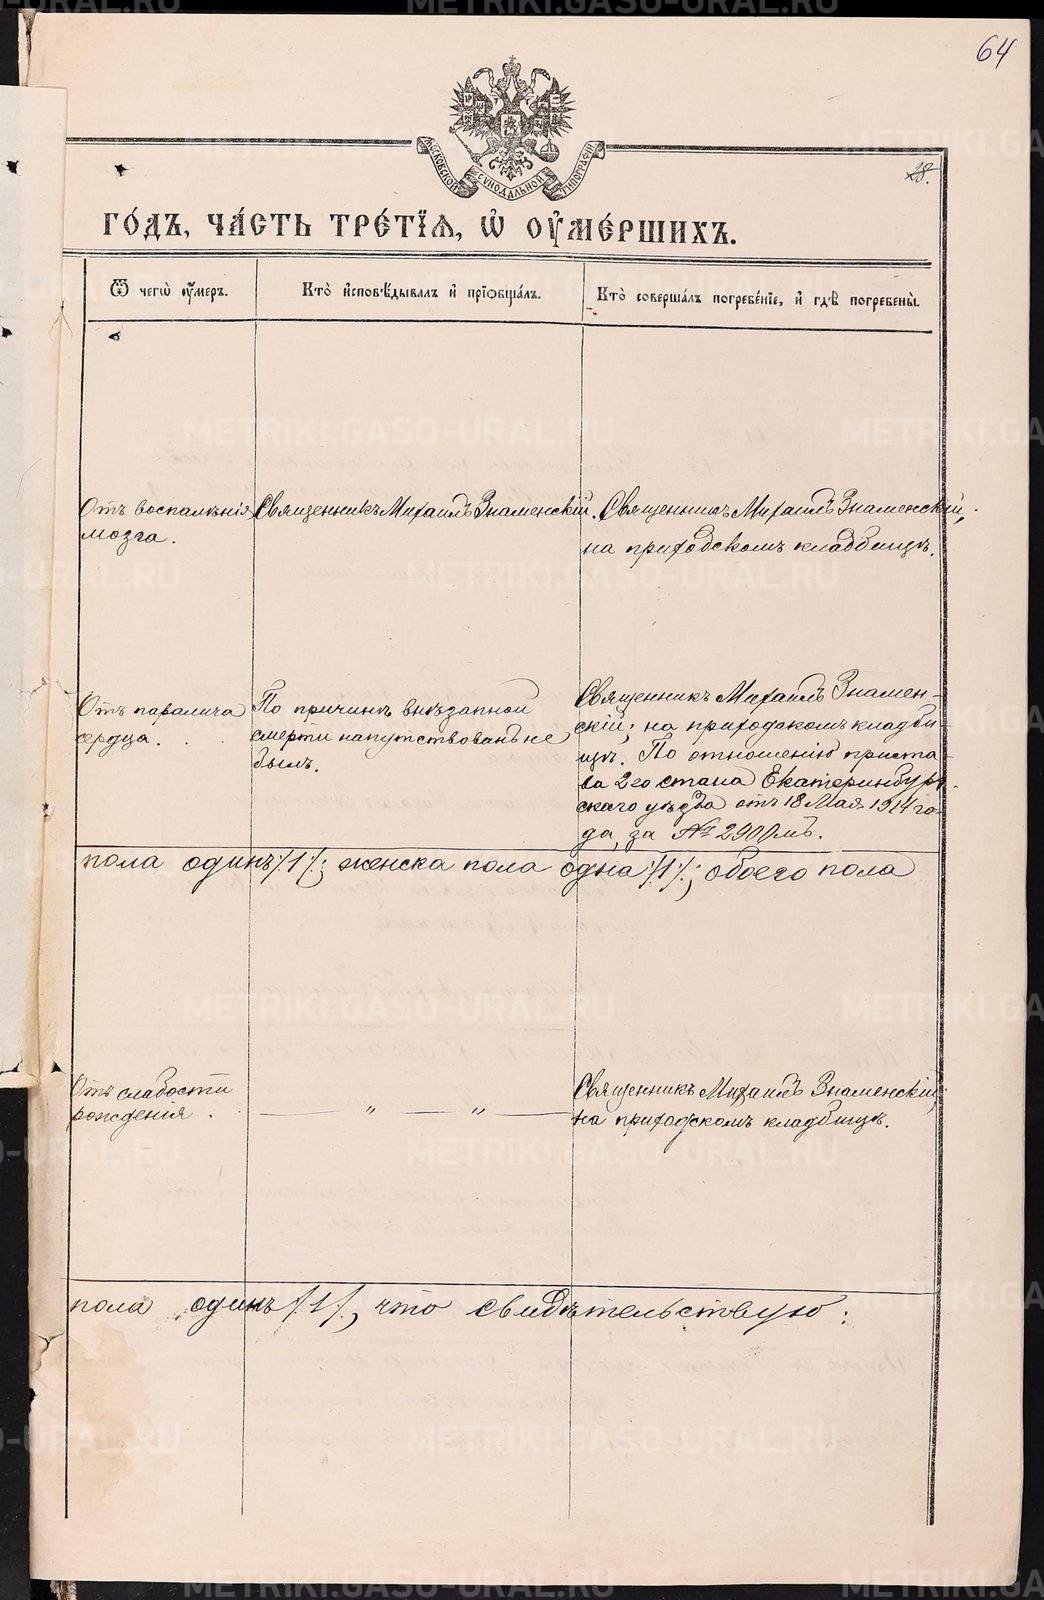 64
28.
МОСКОВСКОЙ СѴНОДАЛЬНОЙ ТИПОГРАФІИ
ГО́ДЪ, ЧА́СТЬ ТРЕ́ТІЯ, Ѡ҆ ОУ҆МЕ́РШИХЪ.
Ѿ чегѡ̀ оу҆́меръ.
Кто̀ и҆сповѣ́дывалъ и҆ прїѡбща́лъ.
Кто̀ соверша́лъ погребе́нїе, и҆ гдѣ̀ погребены̀.
Отъ воспаленія
мозга.
Священникъ Михаилъ Знаменскій.
Священникъ Михаилъ Знаменскій,
на приходскомъ кладбищѣ.
Отъ паралича
сердца.
По причинѣ внезапной
смерти напутствованъ не
былъ.
Священникъ Михаилъ Знамен-
скій; на приходскомъ кладби-
щѣ. По отношенію приста-
ва 2го стана Екатеринбург-
скаго уѣзда отъ 18 Мая 1914 го-
да, за № 2900мъ.
пола одинъ /1/; женска пола одна /1/; обоего пола
Отъ слабости
рожденія.
— „ — „ —
Священникъ Михаилъ Знаменскій;
на приходскомъ кладбищѣ.
пола одинъ /1/, что свидѣтельствую:
METRIKI.GASO-URAL.RU